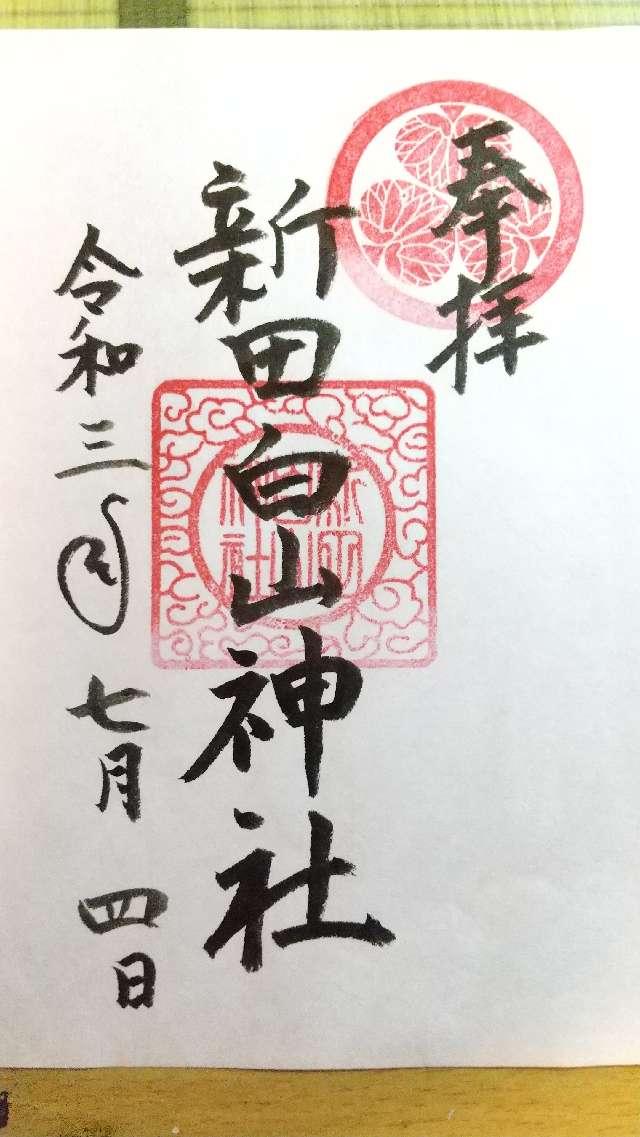 奉拝
新田白山神社
令和三年七月四日